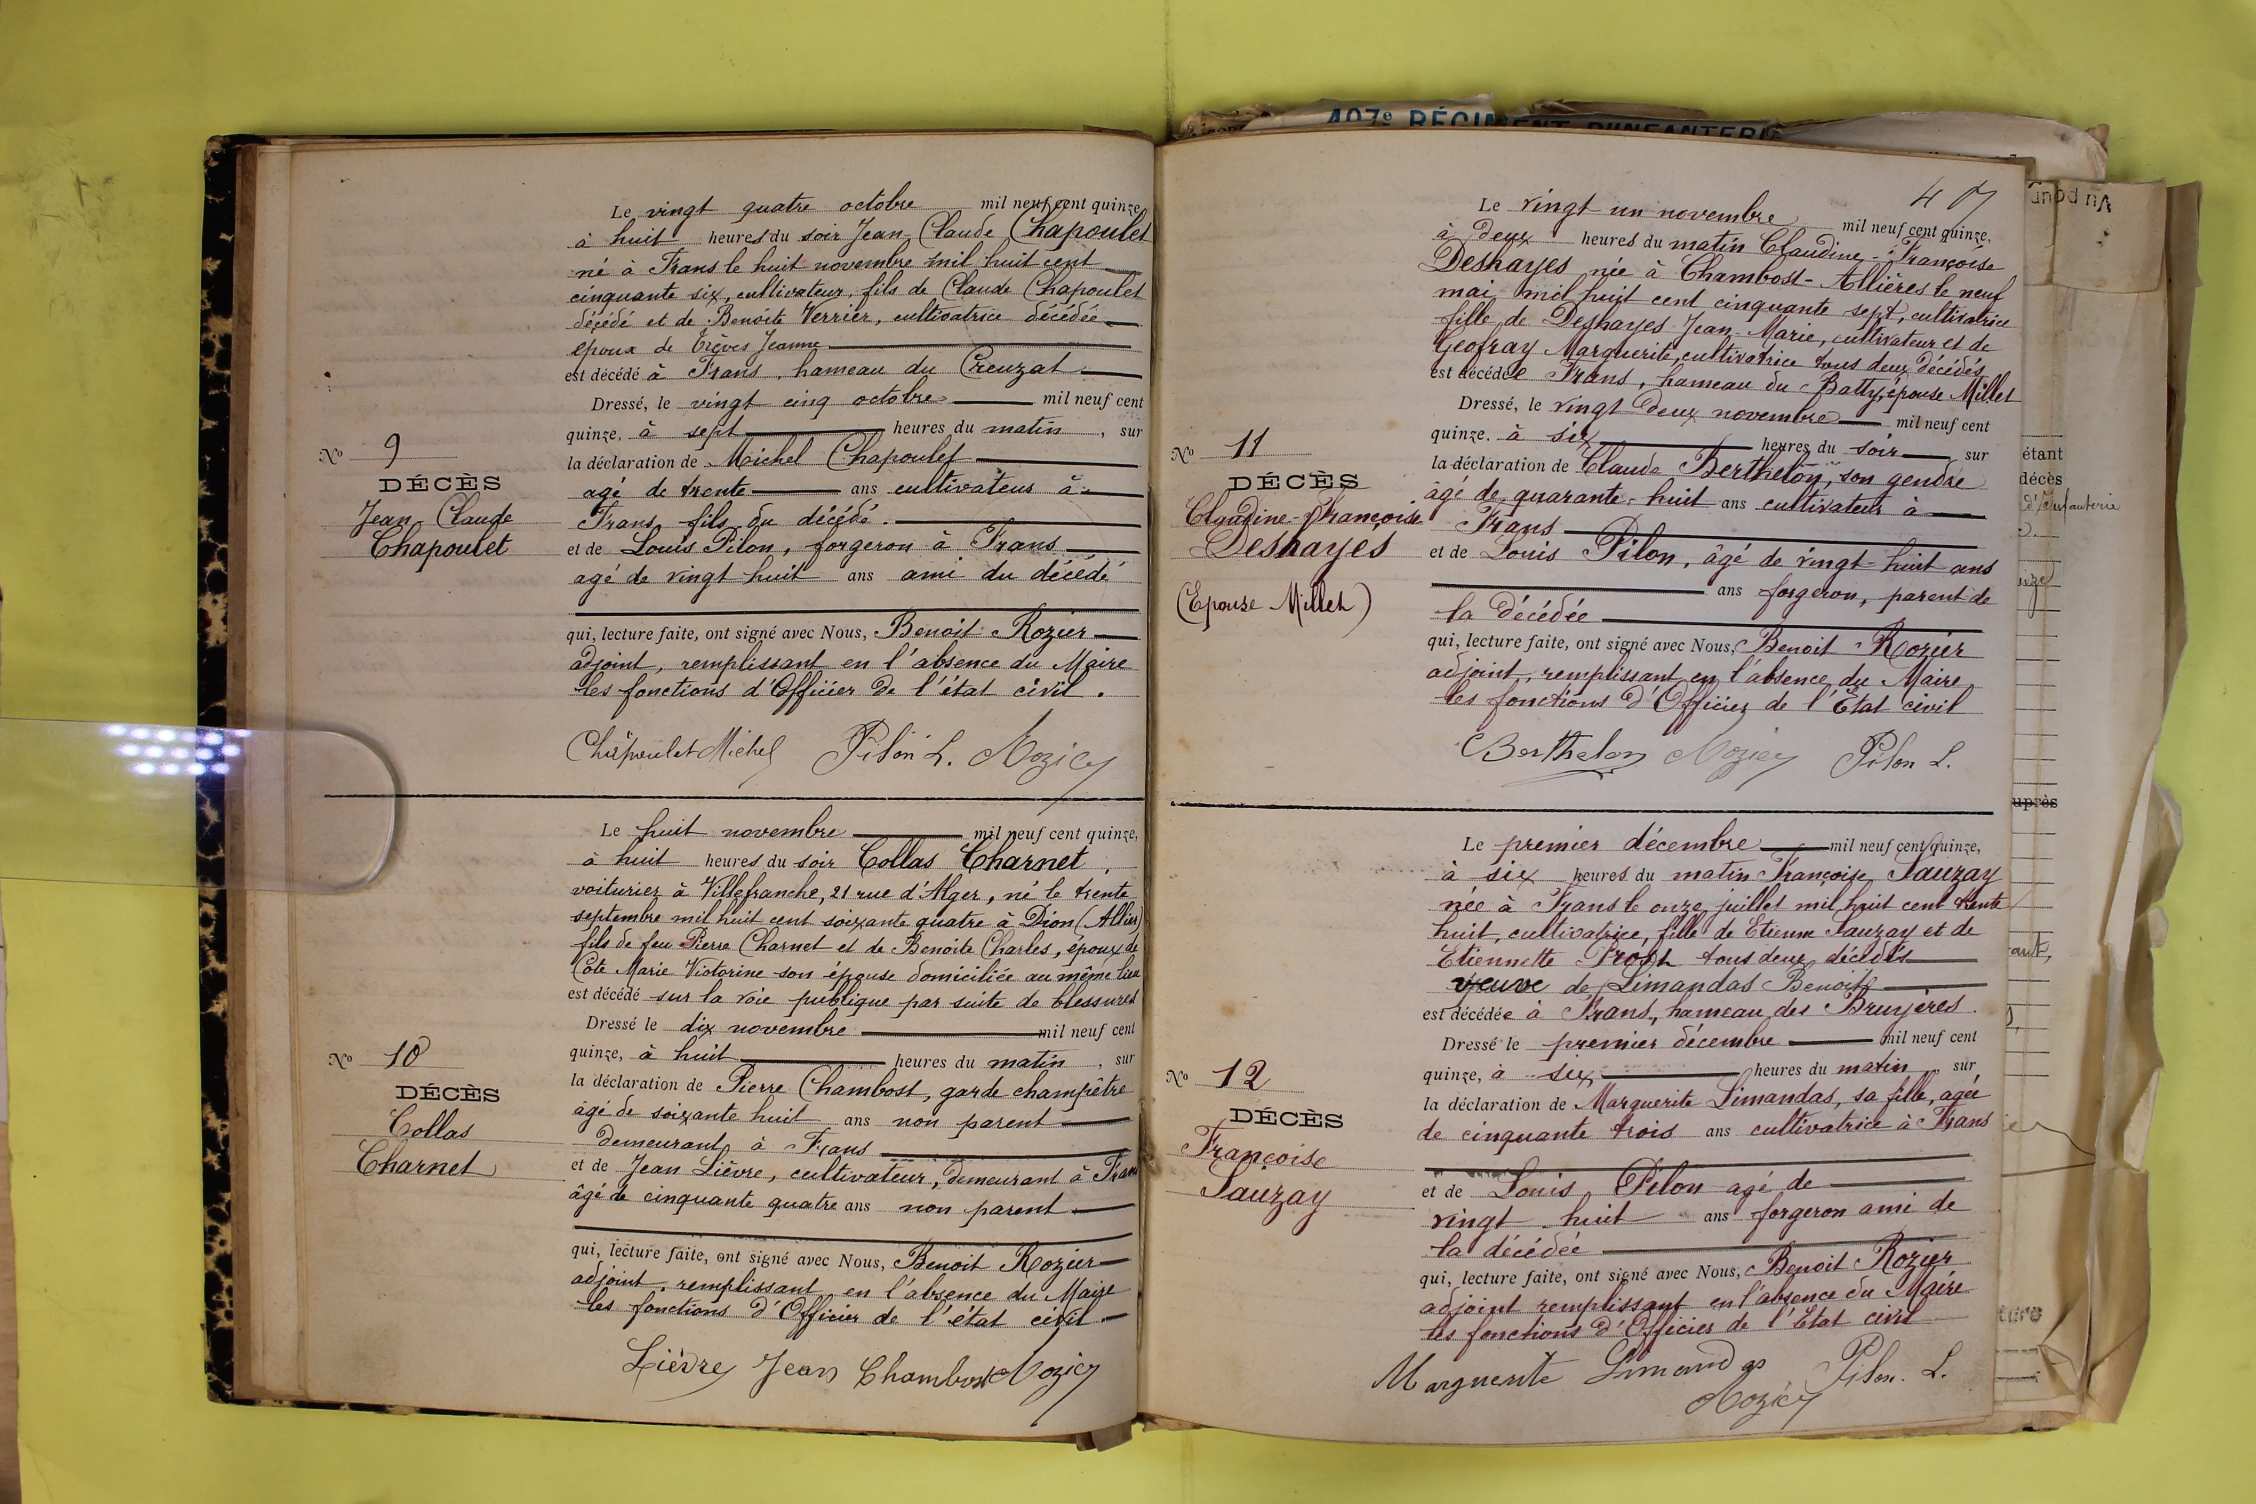 Le vingt quatre octobre mil neuf cent quinze
à huit heures du soir Jean Claude Chapoulet
né à Frans le huit novembre mil huit cent
cinquante six, cultivateur, fils de Claude Chapoulet
décédé et de Benoite Verrier, cultivatrice décédée
époux de Trèves Jeanne
est décédé à Frans, hameau du Creuzat
Dressé, le vingt cinq octobre mil neuf cent
quinze, à sept heures du matin, sur
la déclaration de Michel Chapoulet
agé de trente ans cultivateur à
Frans fils du décédé.
et de Louis Pilon, forgeron à Frans
agé de vingt huit ans ami du décédé
qui, lecture faite, ont signé avec Nous, Benoit Rozier
adjoint, remplissant en l'absence du Maire
les fonctions d'Officier de l'état civil.
Chapoulet Michel Pilon L. Rozier
No 9
DÉCÈS
Jean Claude
Chapoulet
Le huit novembre mil neuf cent quinze,
à huit heures du soir Collas Charnet,
voiturier à Villefranche, 21 rue d'Alger, né le trente
septembre mil huit cent soixante quatre à Dion (Allier)
fils de feu Pierre Charnet et de Benoite Charles, époux de
Cote Marie Victorine son épouse domiciliée au même lieu
est décédé sur la voie publique par suite de blessures
Dressé le dix novembre mil neuf cent
quinze, à huit heures du matin, sur
la déclaration de Pierre Chambost, garde champêtre
âgé de soixante huit ans non parent
demeurant à Frans
et de Jean Lièvre, cultivateur, demeurant à Frans
âgé de cinquante quatre ans non parent
qui, lecture faite, ont signé avec Nous, Benoit Rozier
adjoint, remplissant en l'absence du Maire
les fonctions d'Officier de l'état civil
Lièvre Jean Chambost Rozier
No 10
DÉCÈS
Collas
Charnet
407e RÉGIMENT D'INFANTERIE
47
Le vingt un novembre mil neuf cent quinze,
à deux heures du matin Claudine-Françoise
Deshayes née à Chambost-Allières le neuf
mai mil huit cent cinquante sept, cultivatrice
fille de Deshayes Jean-Marie, cultivateur et de
Geofray Marguerite, cultivatrice tous deux décédés
est décédée Frans, hameau du Batty, épouse Millet
Dressé, le vingt deux novembre mil neuf cent
quinze. à six heures du soir sur
la déclaration de Claude Berthelon, son gendre
âgé de quarante-huit ans cultivateur à
Frans
et de Louis Pilon, âgé de vingt-huit ans
ans forgeron, parent de
la décédée
qui, lecture faite, ont signé avec Nous, Benoit Rozier
adjoint, remplissant en l'absence du Maire
les fonctions d'Officier de l'État civil
Berthelon Rozier Pilon L.
No 11
DÉCÈS
Claudine-Françoise
Deshayes
(Epouse Millet)
Le premier décembre mil neuf cent quinze,
à six heures du matin Françoise Sauzay
née à Frans le onze juillet mil huit cent trente
huit, cultivatrice, fille de Etienne Sauzay et de
Etiennette Prost tous deux décédés
veuve de Limandas Benoit
est décédée à Frans, hameau des Bruyères.
Dressé le premier décembre mil neuf cent
quinze, à six heures du matin, sur,
la déclaration de Marguerite Limandas, sa fille, agée
de cinquante trois ans cultivatrice à Frans
et de Louis Pilon agé de
vingt huit ans forgeron ami de
la décédée
qui, lecture faite, ont signé avec Nous, Benoit Rozier
adjoint remplissant en l'absence du Maire
les fonctions d'Officier de l'État civil
Marguerite Limandas Pilon. L.
Rozier
No 12
DÉCÈS
Françoise
Sauzay
étant
décès
d'Infanterie